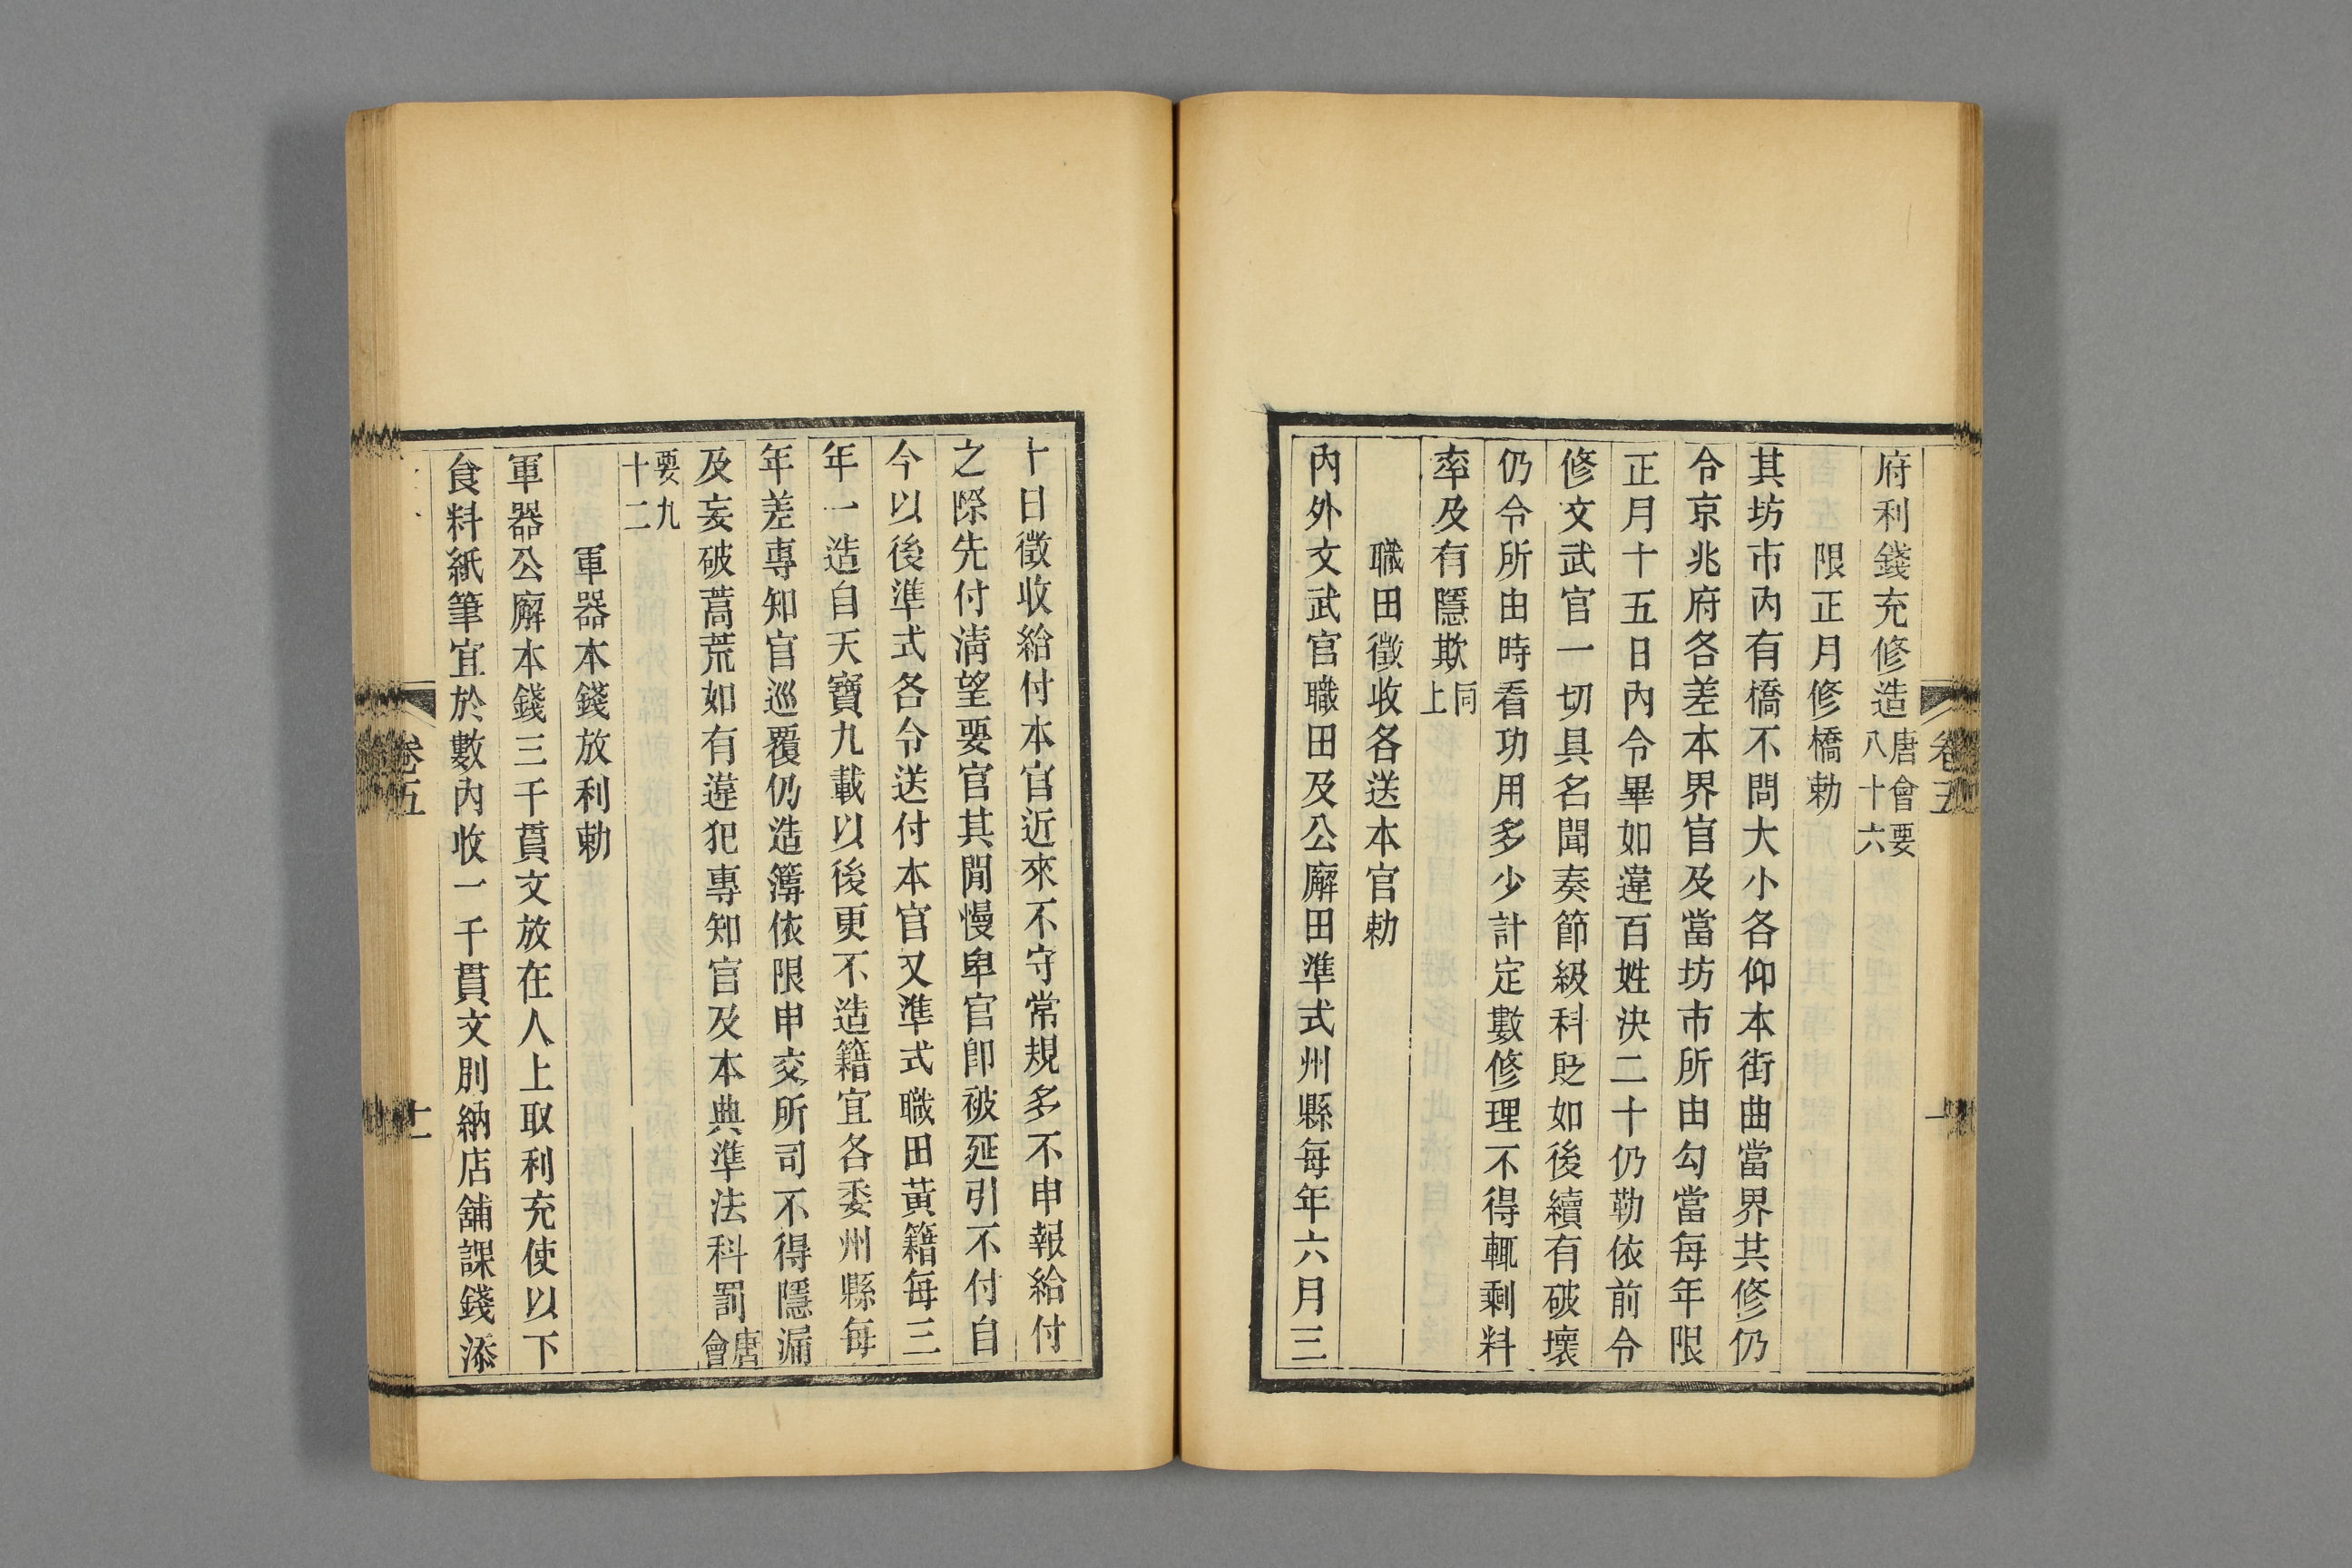 府利錢充修造唐會要八十六
限正月修橋勅
其坊市內有橋不問大小各仰本街曲當界共修仍
令京兆府各差本界官及當坊市所由勾當每年限
正月十五日內令畢如違百姓決二十仍勒依前令
修文武官一切具名聞奏節級科貶如後續有破壞
仍令所由時看功用多少計定數修理不得輒剩料
率及有隱欺同上
職田徵收各送本官勅
內外文武官職田及公廨田準式州縣每年六月三
十日徵收給付本官近來不守常規多不申報給付
之際先付清望要官其閒慢卑官卽被延引不付自
今以後準式各令送付本官又準式職田黃籍每三
年一造自天寶九載以後更不造籍宜各委州縣每
年差專知官巡覆仍造簿依限申交所司不得隱漏
及妄破蒿荒如有違犯專知官及本典準法科罰唐會
要九十二
軍器本錢放利勅
軍器公廨本錢三千貫文放在人上取利充使以下
食料紙筆宜於數內收一千貫文別納店舖課錢添
卷五
卷五